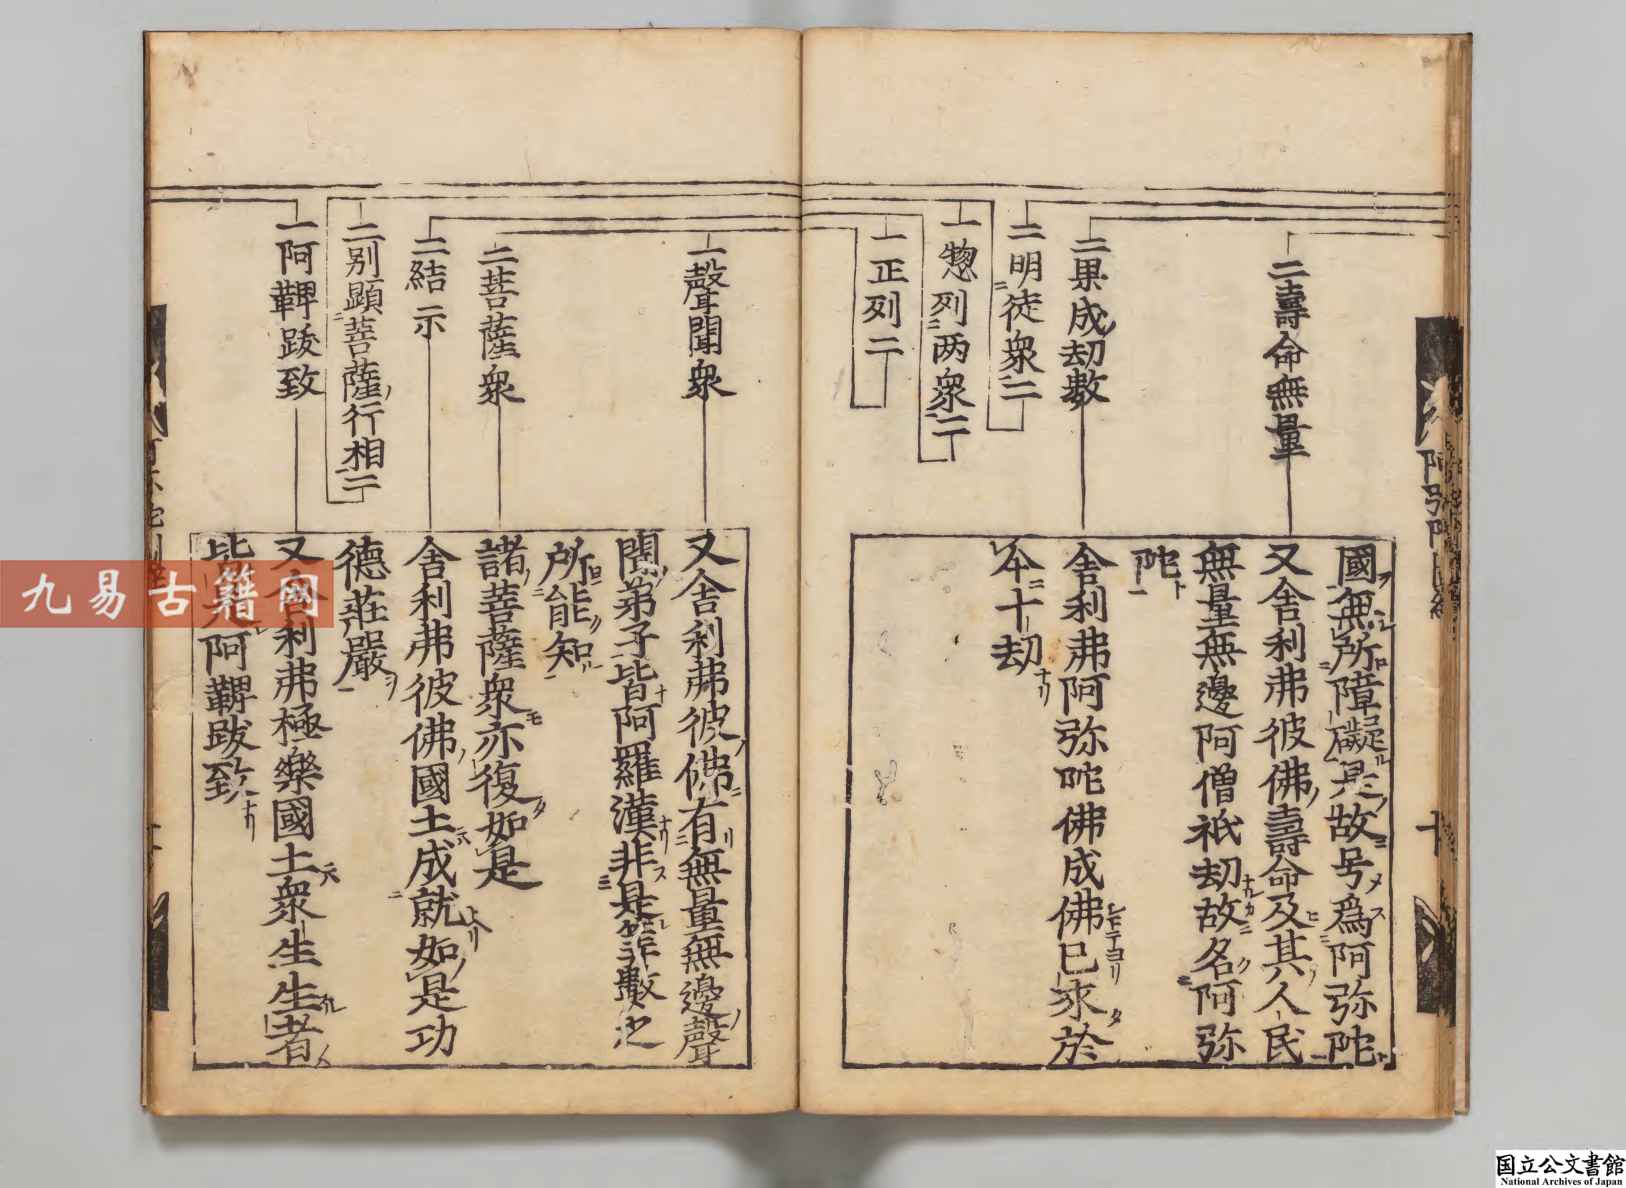 二壽命無量
二果成劫數
二明徒衆二
一惣列两衆二
一正列二
國無所障礙是故号爲阿弥陀
又舎利弗彼佛壽命及其人民
無量無邊阿僧祇劫故名阿弥
陀
舎利弗阿弥陀佛成佛已来於
今十劫
一聲聞衆
二菩薩衆
二結示
二別顕菩薩行相二
一阿鞞跋致
又舎利弗彼佛有無量無邊聲
聞弟子皆阿羅漢非是筭數之
所能知
諸菩薩衆亦復如是
舎利弗彼佛國土成就如是功
德荘嚴
又舎利弗極樂國土衆生生者
皆是阿鞞跋致
九易古籍网
国立公文書館
National Archives of Japan